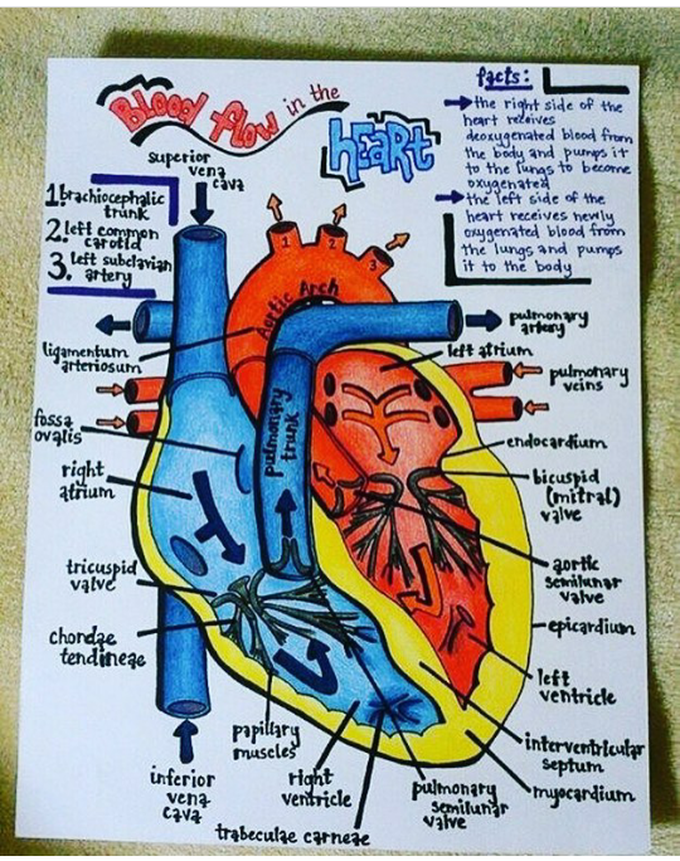 Blood flow in the
heart
facts:
the right side of the
heart receives
deoxygenated blood from
the body and pumps it
to the lungs to become
oxygenated
the left side of the
heart receives newly
oxygenated blood from
the lungs and pumps
it to the body
superior
vena
cava
1. brachiocephalic
trunk
2. left common
carotid
3. left subclavian
artery
1
2
3
Aortic Arch
pulmonary
artery
ligamentum
arteriosum
left atrium
pulmonary
veins
pulmonary
trunk
fossa
ovalis
endocardium
right
atrium
bicuspid
(mitral)
valve
tricuspid
valve
aortic
semilunar
valve
chordae
tendineae
epicardium
left
ventricle
papillary
muscles
interventricular
septum
inferior
vena
cava
right
ventricle
pulmonary
semilunar
valve
myocardium
trabeculae carneae